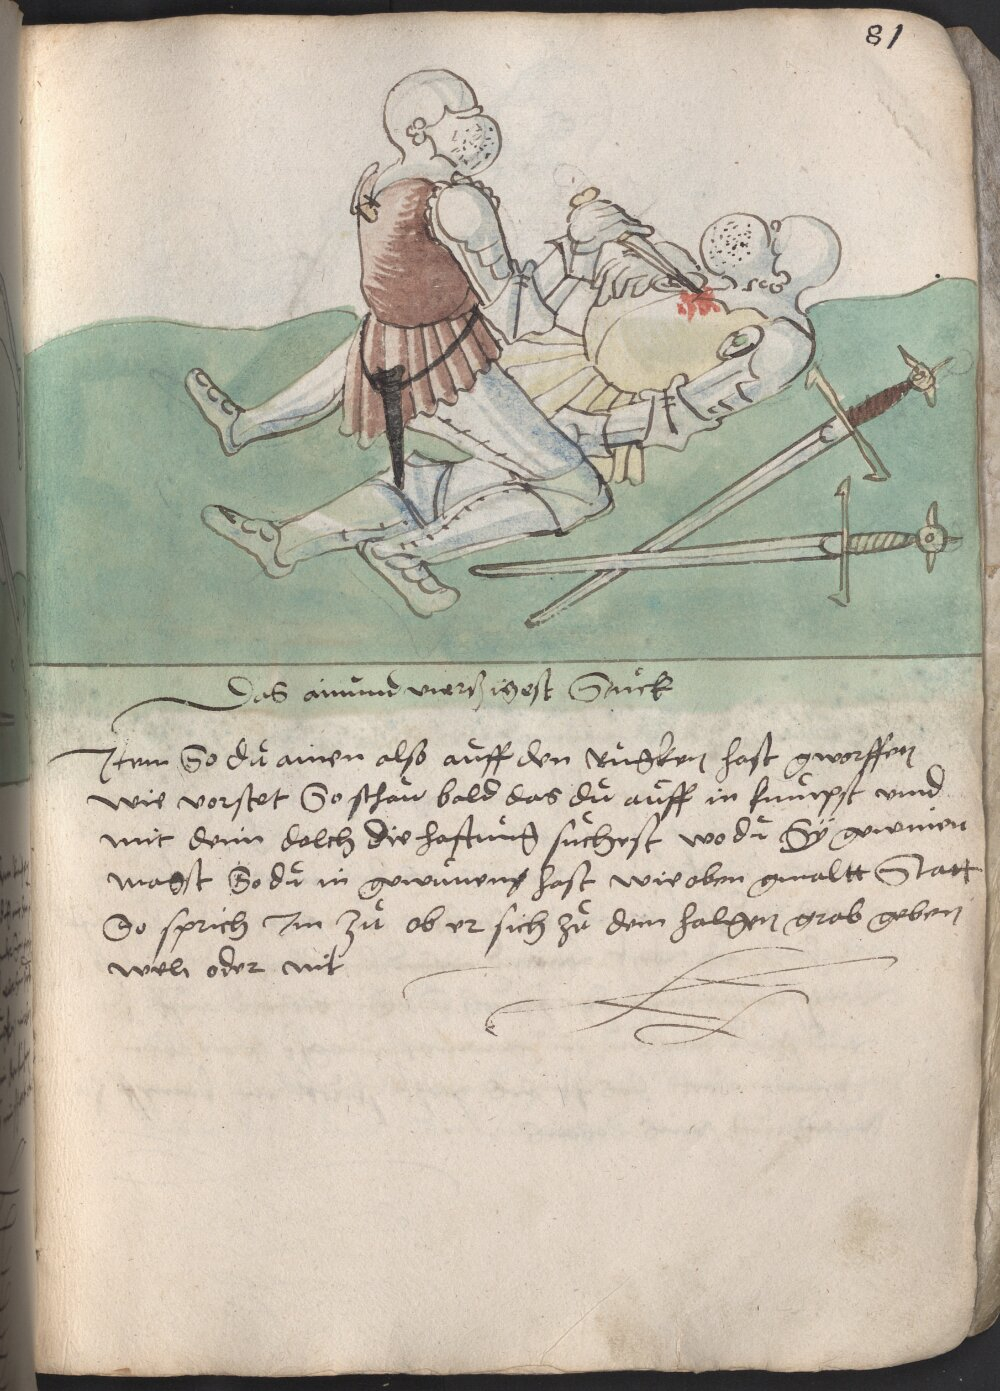 81
Das ainund vierzigest Stuckh
Item So du ainen also auff den Rugken hast geworffen
wie vorstet So schau bald das du auff in knuepst unnd
mit deim dolch die hafftung suchest wo du Sÿ gewinen
magst So du in gewunen hast wie oben gmaltt Statt
So sprich Im zu ob er sich zu dem halgen grab geben
well oder nit